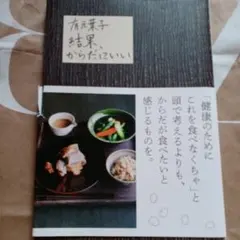 有元葉子
結果、
からだにいい
「健康のために
これを食べなくちゃ」と
頭で考えるよりも、
からだが食べたいと
感じるものを。